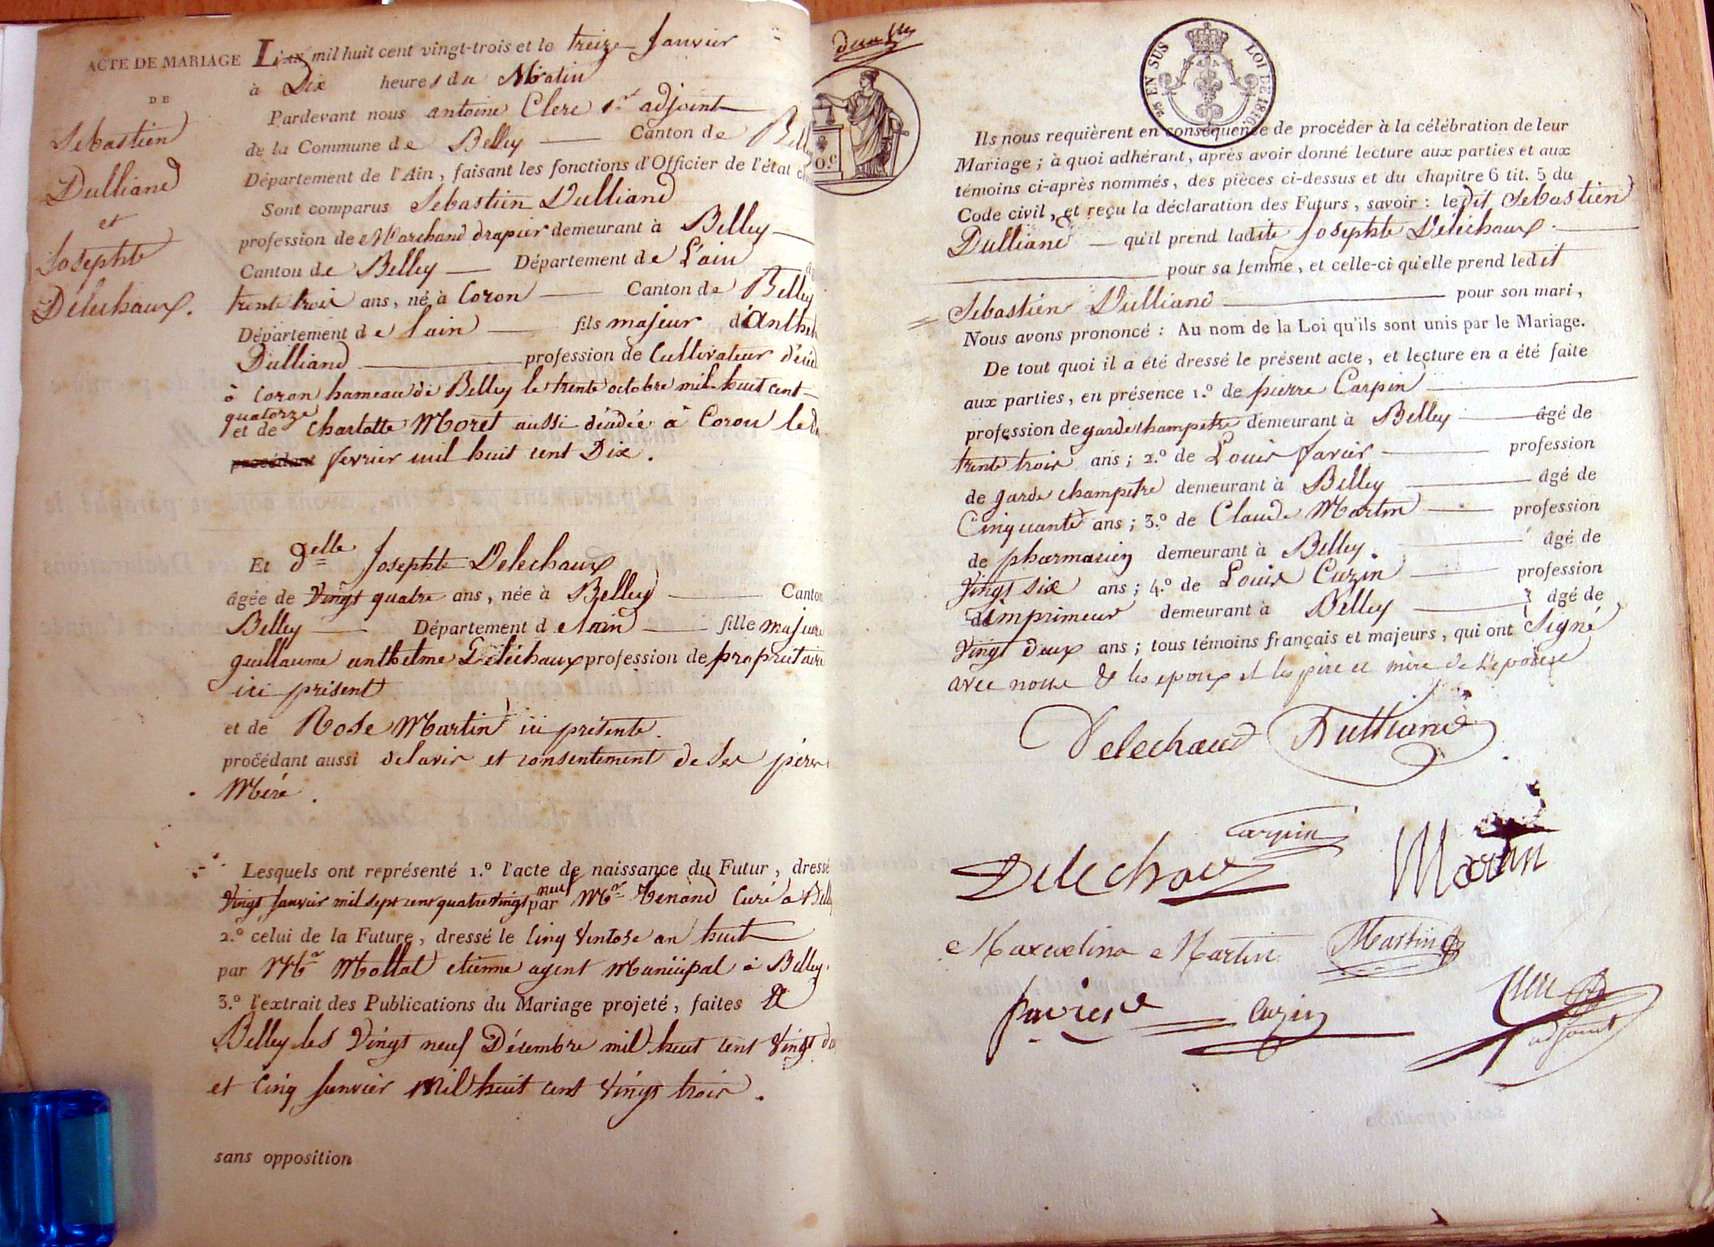 ACTE DE MARIAGE
DE
Sebastien
Dulliand
et
Josephte
Deléchaux.
L'an mil huit cent vingt-trois et le treize Janvier
à Dix heures du Matin
Pardevant nous antoine Clerc 1er adjoint
de la Commune de Belley Canton de
Département de l'Ain, faisant les fonctions d'Officier de l'état
Sont comparus Sebastien Dulliand
profession de Marchand drapier demeurant à Belley
Canton de Belley Département de L'ain
trente trois ans, né à Coron Canton de Belley
Département de lain fils majeur d'
Dulliand profession de Cultivateur
à Coron hameau de Belley le trente octobre mil huit cent
quatorze
et de Charlotte Moret aussi décédée à Coron le
fevrier mil huit cent Dix.
Et Delle Josephte Delechaux
âgée de Vingt quatre ans, née à Belley Canton
Belley Département de lain fille majeure
guillaume anthelme Deléchaux profession de propriétaire
ici présent
et de Rose Martin ici présente.
procédant aussi de lavis et consentement de ses père
Mère.
Lesquels ont représenté 1.º l'acte de naissance du Futur, dressé
Vingt Janvier mil sept cent quatre vingt neuf par Mr Tenand Curé à
2.º celui de la Future, dressé le Cinq Ventose an huit
par Mr Mollat etienne agent Municipal à Belley.
3.º l'extrait des Publications du Mariage projeté, faites à
Belley les Vingt neuf Décembre mil huit cent Vingt
et Cinq Janvier Mil huit cent Vingt trois.
sans opposition
25 EN SUS LOI DE 1816.
Ils nous requièrent en conséquence de procéder à la célébration de leur
Mariage; à quoi adhérant, après avoir donné lecture aux parties et aux
témoins ci-après nommés, des pièces ci-dessus et du chapitre 6 tit. 5 du
Code civil, et reçu la déclaration des Futurs, savoir: ledit Sebastien
Dulliand qu'il prend ladite Josephte Deléchaux
pour sa femme, et celle-ci qu'elle prend ledit
Sebastien Dulliand pour son mari,
Nous avons prononcé: Au nom de la Loi qu'ils sont unis par le Mariage.
De tout quoi il a été dressé le présent acte, et lecture en a été faite
aux parties, en présence 1.º de pierre Carpin
profession de garde champetre demeurant à Belley âgé de
trente trois ans; 2.º de Louis Favier profession
de garde champetre demeurant à Belley âgé de
Cinquante ans; 3.º de Claude Martin profession
de pharmacien demeurant à Belley. âgé de
Vingt six ans; 4.º de Louis Cuzin profession
d'imprimeur demeurant à Belley âgé de
Vingt deux ans; tous témoins français et majeurs, qui ont Signé
avec nous & les epoux et les père et mère de l'epouse
Delechaud Dulliand
Carpin
Delechaux Martin
Martin Martin
Favier Cuzin Clerc
adjoint